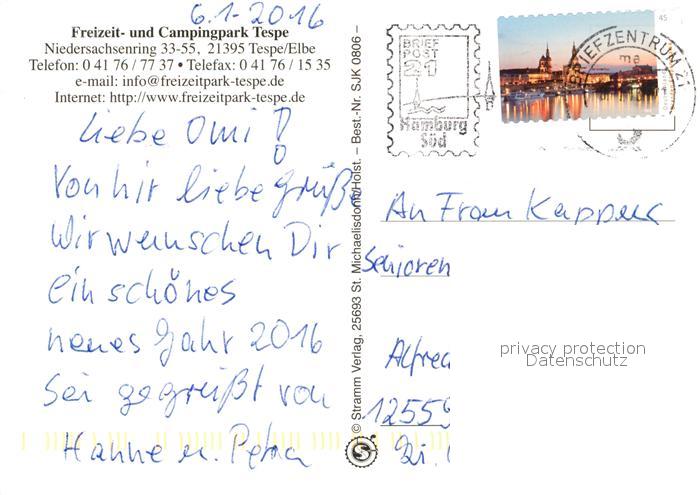 6.1-2016
Freizeit- und Campingpark Tespe
Niedersachsenring 33-55, 21395 Tespe/Elbe
Telefon: 0 41 76 / 77 37 • Telefax: 0 41 76 / 15 35
e-mail: info@freizeitpark-tespe.de
Internet: http://www.freizeitpark-tespe.de
Liebe Omi!
Von hir liebe Grüße
Wir wünschen Dir
ein schönes
neues Jahr 2016
Sei gegrüßt von
Hanne u. Petra
© Stramm Verlag, 25693 St. Michaelisdonn/Holst. – Best.-Nr. SJK 0806 –
BRIEF
POST
21
Hamburg
Süd
45
BRIEFZENTRUM 21
ma
An Frau
Senioren
Alfred
12559
Zi.
privacy protection
Datenschutz